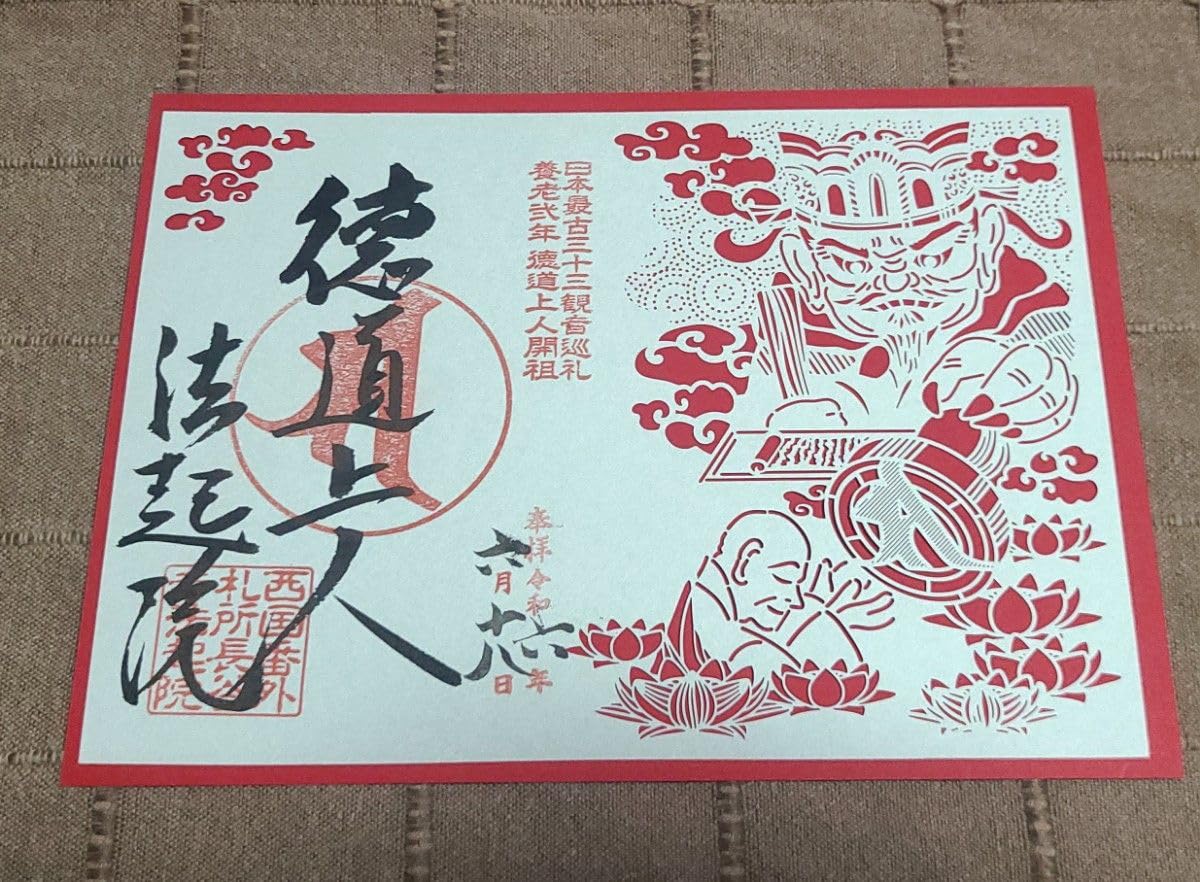 日本最古三十三観音巡礼
養老弐年徳道上人開祖
奉拝令和六年
六月十九日
徳道上人
法起院
西国番外
札所長谷
院